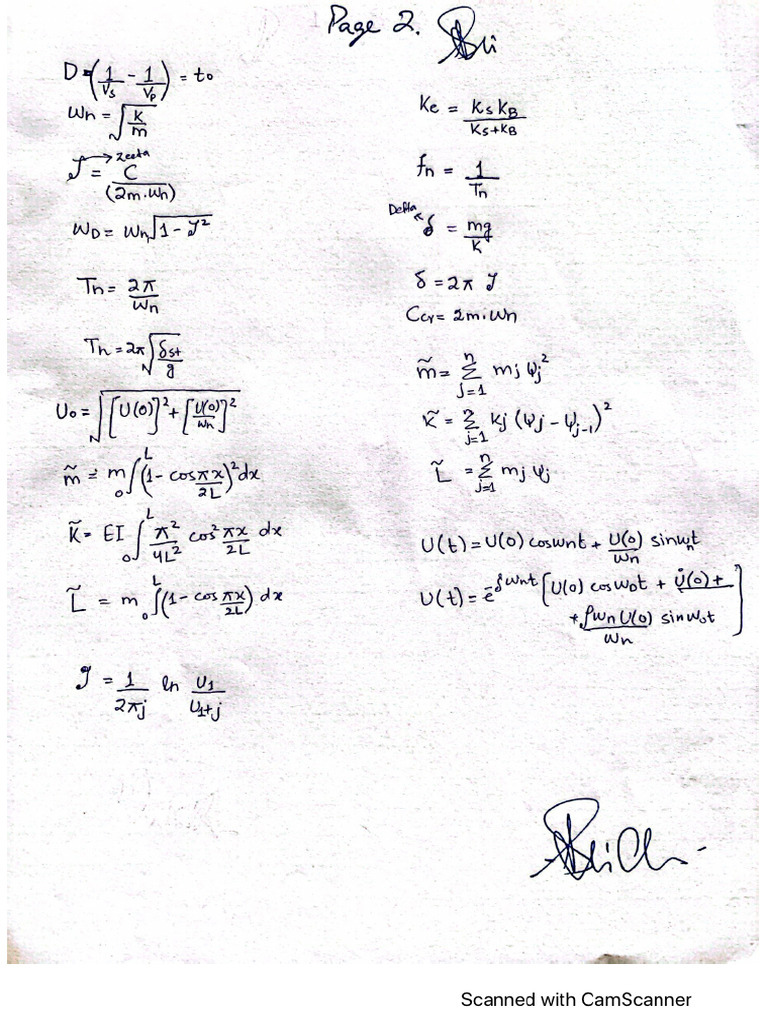 Page 2.
D=(1/Vs - 1/Vp) = to
Wn = √(K/m)
ζ → Zeeta
ζ = C/(2m·Wn)
WD = Wn√(1 - ζ²)
Tn = 2π/Wn
Tn = 2π√(δst/g)
Uo = √([U(0)]² + [U(0)/wn]²)
m̃ = m ₀∫ᴸ (1 - cos πx/2L)² dx
K̃ = EI ₀∫ᴸ π²/4L² cos² πx/2L dx
L̃ = m ₀∫ᴸ (1 - cos πx/2L) dx
ζ = 1/2πj ln U1/U1+j
Ke = Ks KB/Ks+KB
fn = 1/Tn
Delta
δ = mg/K
δ = 2π ζ
Ccr = 2m·Wn
m̃ = Σ(j=1, n) mj ψj²
K̃ = Σ(j=1, n) Kj (ψj - ψj-1)²
L̃ = Σ(j=1, n) mj ψj
U(t) = U(0) coswnt + U(0)/wn sinwnt
U(t) = e^-ζwnt [U(0) coswDt + U̇(0) +
+ ζwn U(0)/wn sinwDt]
Scanned with CamScanner